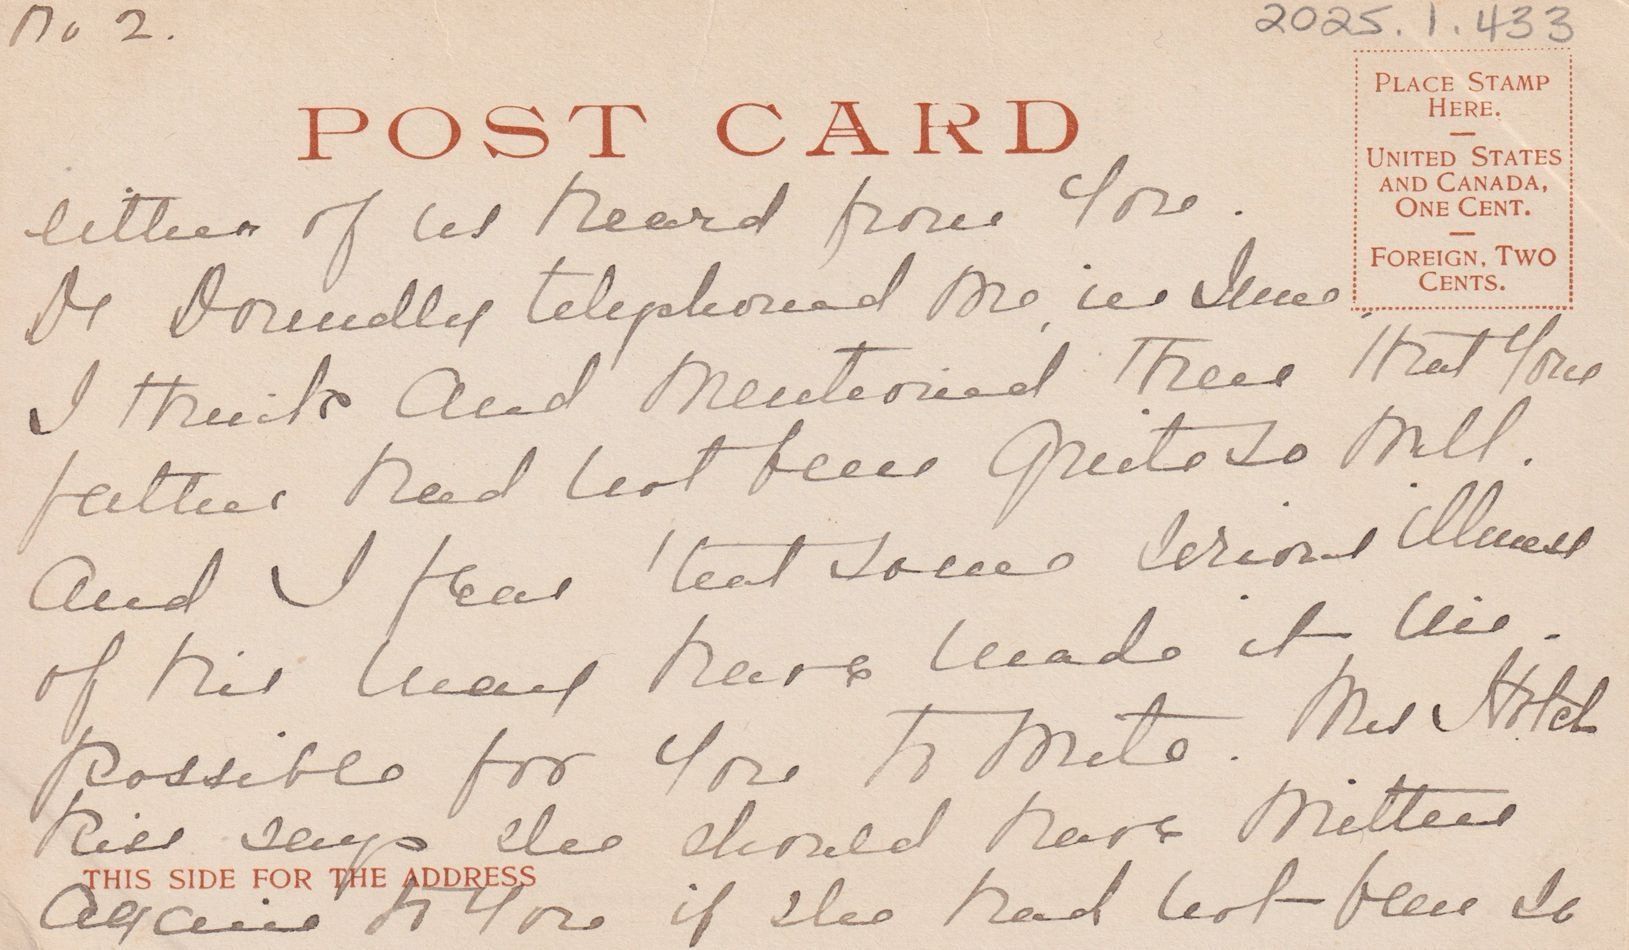 No 2.
2025.1.433
POST CARD
PLACE STAMP
HERE.
UNITED STATES
AND CANADA,
ONE CENT.
FOREIGN, TWO
CENTS.
either of us heard from you.
Dr Donnelly telephoned me, in June
I think and mentioned then that your
father had not been quite so well.
And I fear that some serious illness
of his may have made it im-
possible for you to write. Mrs Hotch
kiss says she should have written
THIS SIDE FOR THE ADDRESS
again to you if she had not been so